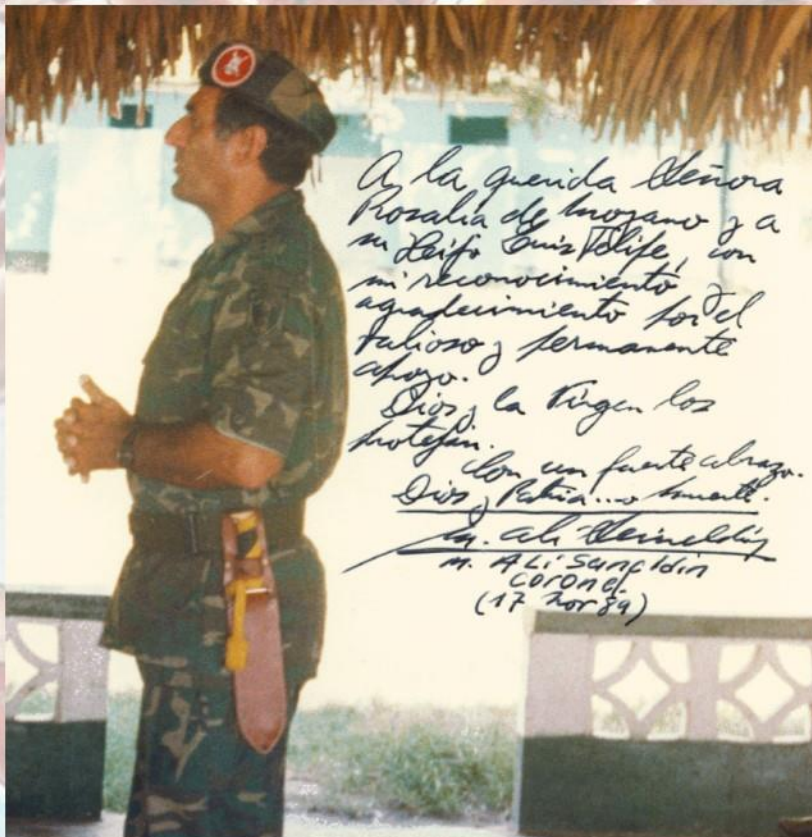 A la querida Señora
Rosalia de Moyano y a
su Heifo Luis Felife, con
mi reconocimiento y
agradecimiento por el
valioso y permanente
apoyo.
Dios y la Virgen los
protefan.
Con un fuerte abrazo.
Dios y Patria...o muerte.
M. Ali Seineldin
M. ALi Seineldin
coronel
(17 Nov 89)